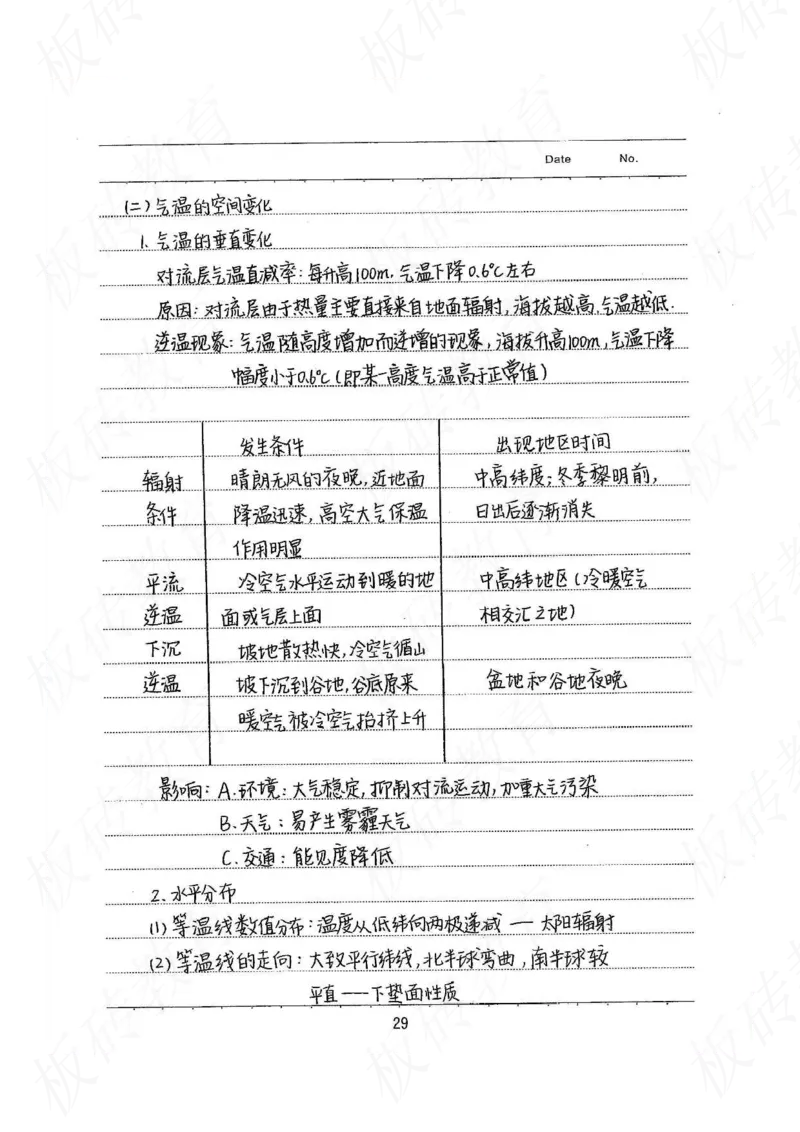 Date No.
(二)气温的空间变化
1. 气温的垂直变化
对流层气温直减率：每升高100m,气温下降0.6℃左右
原因：对流层由于热量主要直接来自地面辐射,海拔越高,气温越低.
逆温现象：气温随高度增加而逆增的现象,海拔升高100m,气温下降
幅度小于0.6℃(即某一高度气温高于正常值)
发生条件 出现地区时间
辐射 晴朗无风的夜晚,近地面 中高纬度;冬季黎明前,
条件 降温迅速,高空大气保温 日出后逐渐消失
作用明显
平流 冷空气水平运动到暖的地 中高纬地区(冷暖空气
逆温 面或气层上面 相交汇之地)
下沉 坡地散热快,冷空气循山
逆温 坡下沉到谷地,谷底原来 盆地和谷地夜晚
暖空气被冷空气抬挤上升
影响：A.环境：大气稳定,抑制对流运动,加重大气污染
B.天气：易产生雾霾天气
C.交通：能见度降低
2. 水平分布
(1)等温线数值分布：温度从低纬向两极递减 — 太阳辐射
(2)等温线的走向：大致平行纬线,北半球弯曲,南半球较
平直——下垫面性质
29
板砖教育